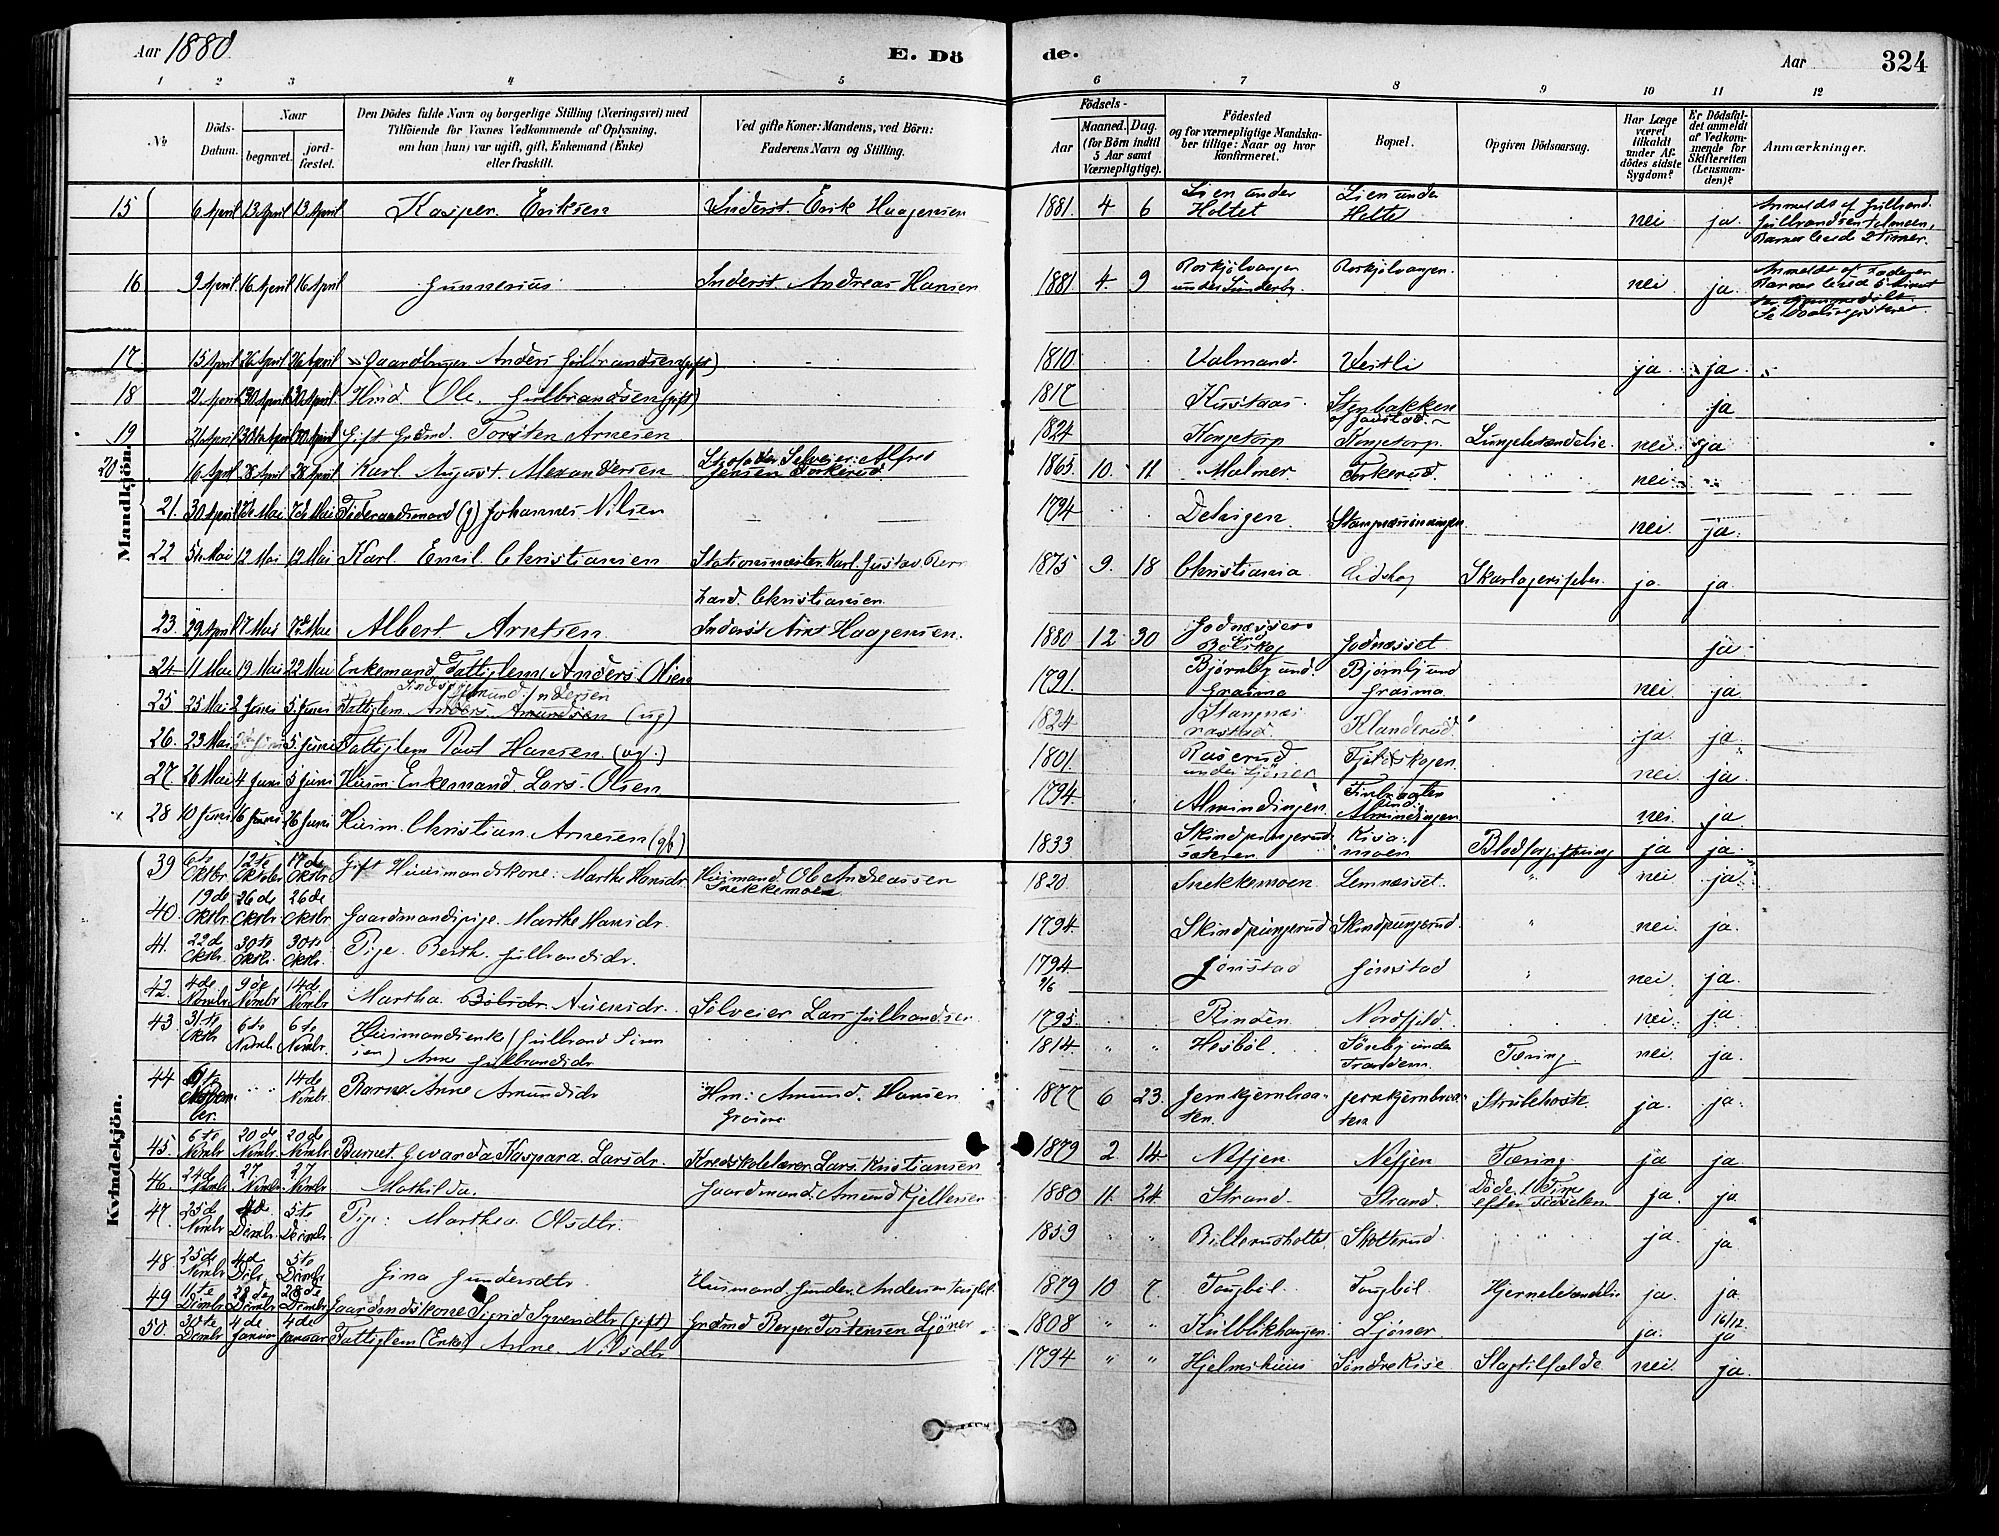 Aar 1880. E. Dö
de. Aar 324
1 2 3 4 5 6 7 8 9 10 11 12
No
Döds-Datum.
Naar
begravet. jordfæstet.
Den Dödes fulde Navn og borgerlige Stilling (Næringsvei) med
Tilföiende for Voxnes Vedkommende af Oplysning,
om han (hun) var ugift, gift, Enkemand (Enke)
eller fraskilt.
Ved gifte Koner: Mandens, ved Börn:
Faderens Navn og Stilling.
Födsels-
Aar Maaned. Dag.
(for Börn indtil
5 Aar samt
Værnepligtige).
Födested
og for værnepligtige Mandska-
ber tillige: Naar og hvor
konfirmeret.
Bopæl.
Opgiven Dödsaarsag.
Har Læge
været
tilkaldt
under Af-
dödes sidste
Sygdom?
Er Dödsfal-
det anmeldt
af Vedkom-
mende for
Skifteretten
(Lensman-
den)?
Anmærkninger.
Mandkjön.
15 6 April 13 April 13 April Kasper Eriksen Inderst. Erik Haagensen 1881. 4 6 Lien under Holtet Lien under Holtet nei ja. Anmeldt af Gulbrand Gulbrandsen Barnet levede 2 Timer.
16 9 April 16 April 16 April Gunnerius Inderst Andreas Hansen 1881 4 9 Roskjölvangen under Sunderby. Roskjölvangen. nei. ja. Anmeldt af Faderen Barnet levede 5 Minut
17. 15 April 26 April 26 April Gaardbruger Anders Gulbrandsen (gift) 1810 Valmand. Vestli ja ja
18 21 April 30 April 30 April. Hmd Ole Gulbrandsen (gift) 1817 Kustaas. Stenbakken ja
19 21 April 30 April 30 April Gift Grdmd. Torsten Arnesen 1824 Kongetorp Kongetorp. Lungebetændelse nei ja
20 16 April 28 April 28 April Karl August Alexandersen Stedfader Selveier: Alfred Jensen Torkerud 1865 10 11 Malmer Torkerud. nei
21. 30 April 7de Mai 7de Mai Föderaadsmand (g) Johannes Nilsen 1794 nei. ja.
22 5te Mai 12 Mai 12 Mai Karl Emil Christiansen Stationsmester Karl Gustav Bern hard Christiansen. 1875 9. 18 Christiania Eidskog Skarlagensfeber. ja. ja.
23. 29 April 7 Mai 7de Mai Albert Arntsen. Inderst Arnt Haagensen. 1880 12 30 Godnæsset Bölskog Godnæsset ja
24 11 Mai 19 Mai 22 Mai Enkemand Fattiglem Anders Olsen 1791. Björnby und. Grasmo Björnby und Grasmo. nei ja
25 25 Mai 2 Juni 5. Juni Fattiglem Anders Amundsen (ug) 1824 Klanderud ja. ja
26. 23 Mai 5 Juni Fattiglem Poul Hansen (ug.) 1801. Raserud under Ljöner nei. ja.
27 26 Mai 4 Juni 5 Juni Husm. Enkemand Lars Olsen 1794. Almindingen. Almindingen nei ja
28 10 Juni 16 Juni 26 Juni Husm. Christian Arnesen (gft) 1833 Skindpungerud sæteren Kisa-moen Blodforgiftning ja ja.
Kvindekjön.
39 6te Oktbr. 12te Oktober 17de Oktbr Gift Husmandskone. Marthe Hansdr. Husmand Ole Andreassen Snekkemoen 1820. Snekkemoen Lemnæsset. nei ja
40. 19de Oktbr. 26de Oktbr 26de Oktbr Gaardmandspige. Marthe Hansdr. 1794. Skindpungerud Skindpungerud. " nei. ja.
41. 22d Oktbr. 30te Oktbr. 30te Oktbr. Pige. Berth. Gulbrandsdr. 1794 9/6 Jonstad Jonstad " nei. ja.
42 4de Novbr 9de Novbr 14de Novbr Martha Auensdr. Selveier Lars Gulbrandsen 1795 Rinden Nordfjeld. nei. ja
43. 31te Oktbr 6te Novbr. 6te Novbr. Husmandsenke (Gulbrand Simensen) Anne Gulbrandsdr 1814. " " Hesböl. Sönby under Trandem Tæring nei ja.
44 14de Novbr. Barnet Anne Amundsdr Hm: Amund. Hansen 1877 6 23. Jernkjernbraaten. Jernkjernbraaten Strubehoste. ja. ja.
45. 6te Novbr. 20de Novbr. 20de Novbr Barnet. Gevarda Kaspara Larsdr. Kredsskolelærer Lars Kristiansen 1879 2 14. Nefjen. Nefjen Tæring. ja ja.
46. 24de 27 Novbr. 27 Novbr. Mathilda. Gaardmand. Amund Kjellesen 1880 11. 24. Strand. Strand. Döde 1 Time efter Födselen ja. ja
47. 25de Novbr 4de Dembr 5te Dembr Pige: Marthea Olsdtr. 1859 " " Billerudholtet Skotterud. ja. ja
48 25de Novbr. 4de 5te Dembr Gina Gundersdtr Husmand Gunder Andersen 1879 10 7. Tougböl. Tougböl. Hjernebetændelse ja. ja.
49 11te Dembr 28de Dembr 28de Dembr Gaardmdskone Sigrid Syversdtr (gift) Grdmd Berger Tostensen Ljöner 1808 " " Kulblikhaugen. Ljöner. ja. 16/12 ja
50. 30te Dembr 4de Januar 4de Januar Fattiglem (Enke) Anne Nilsdtr 1794 " " Hjelmshuus Söndre Kise Slagtilfælde nei. ja.